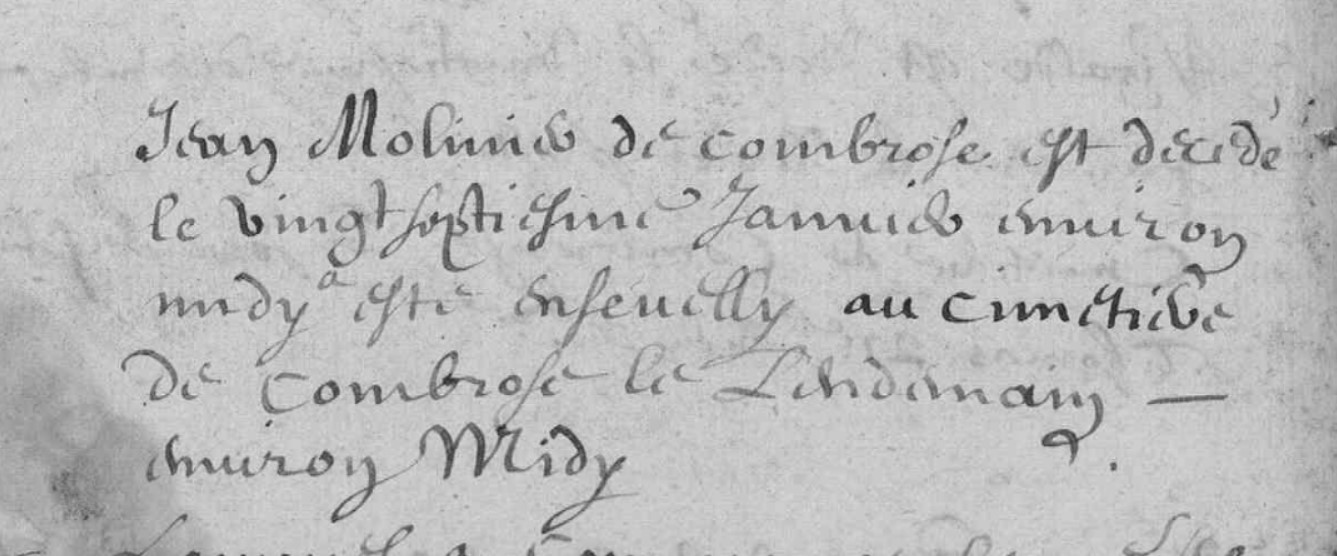 Jean Molinier de combrose est decedé
le vingt septiesme Januier enuiron
midy a esté enseuelly au cimetiere
de Combrose le Lendemain —
enuiron Midy